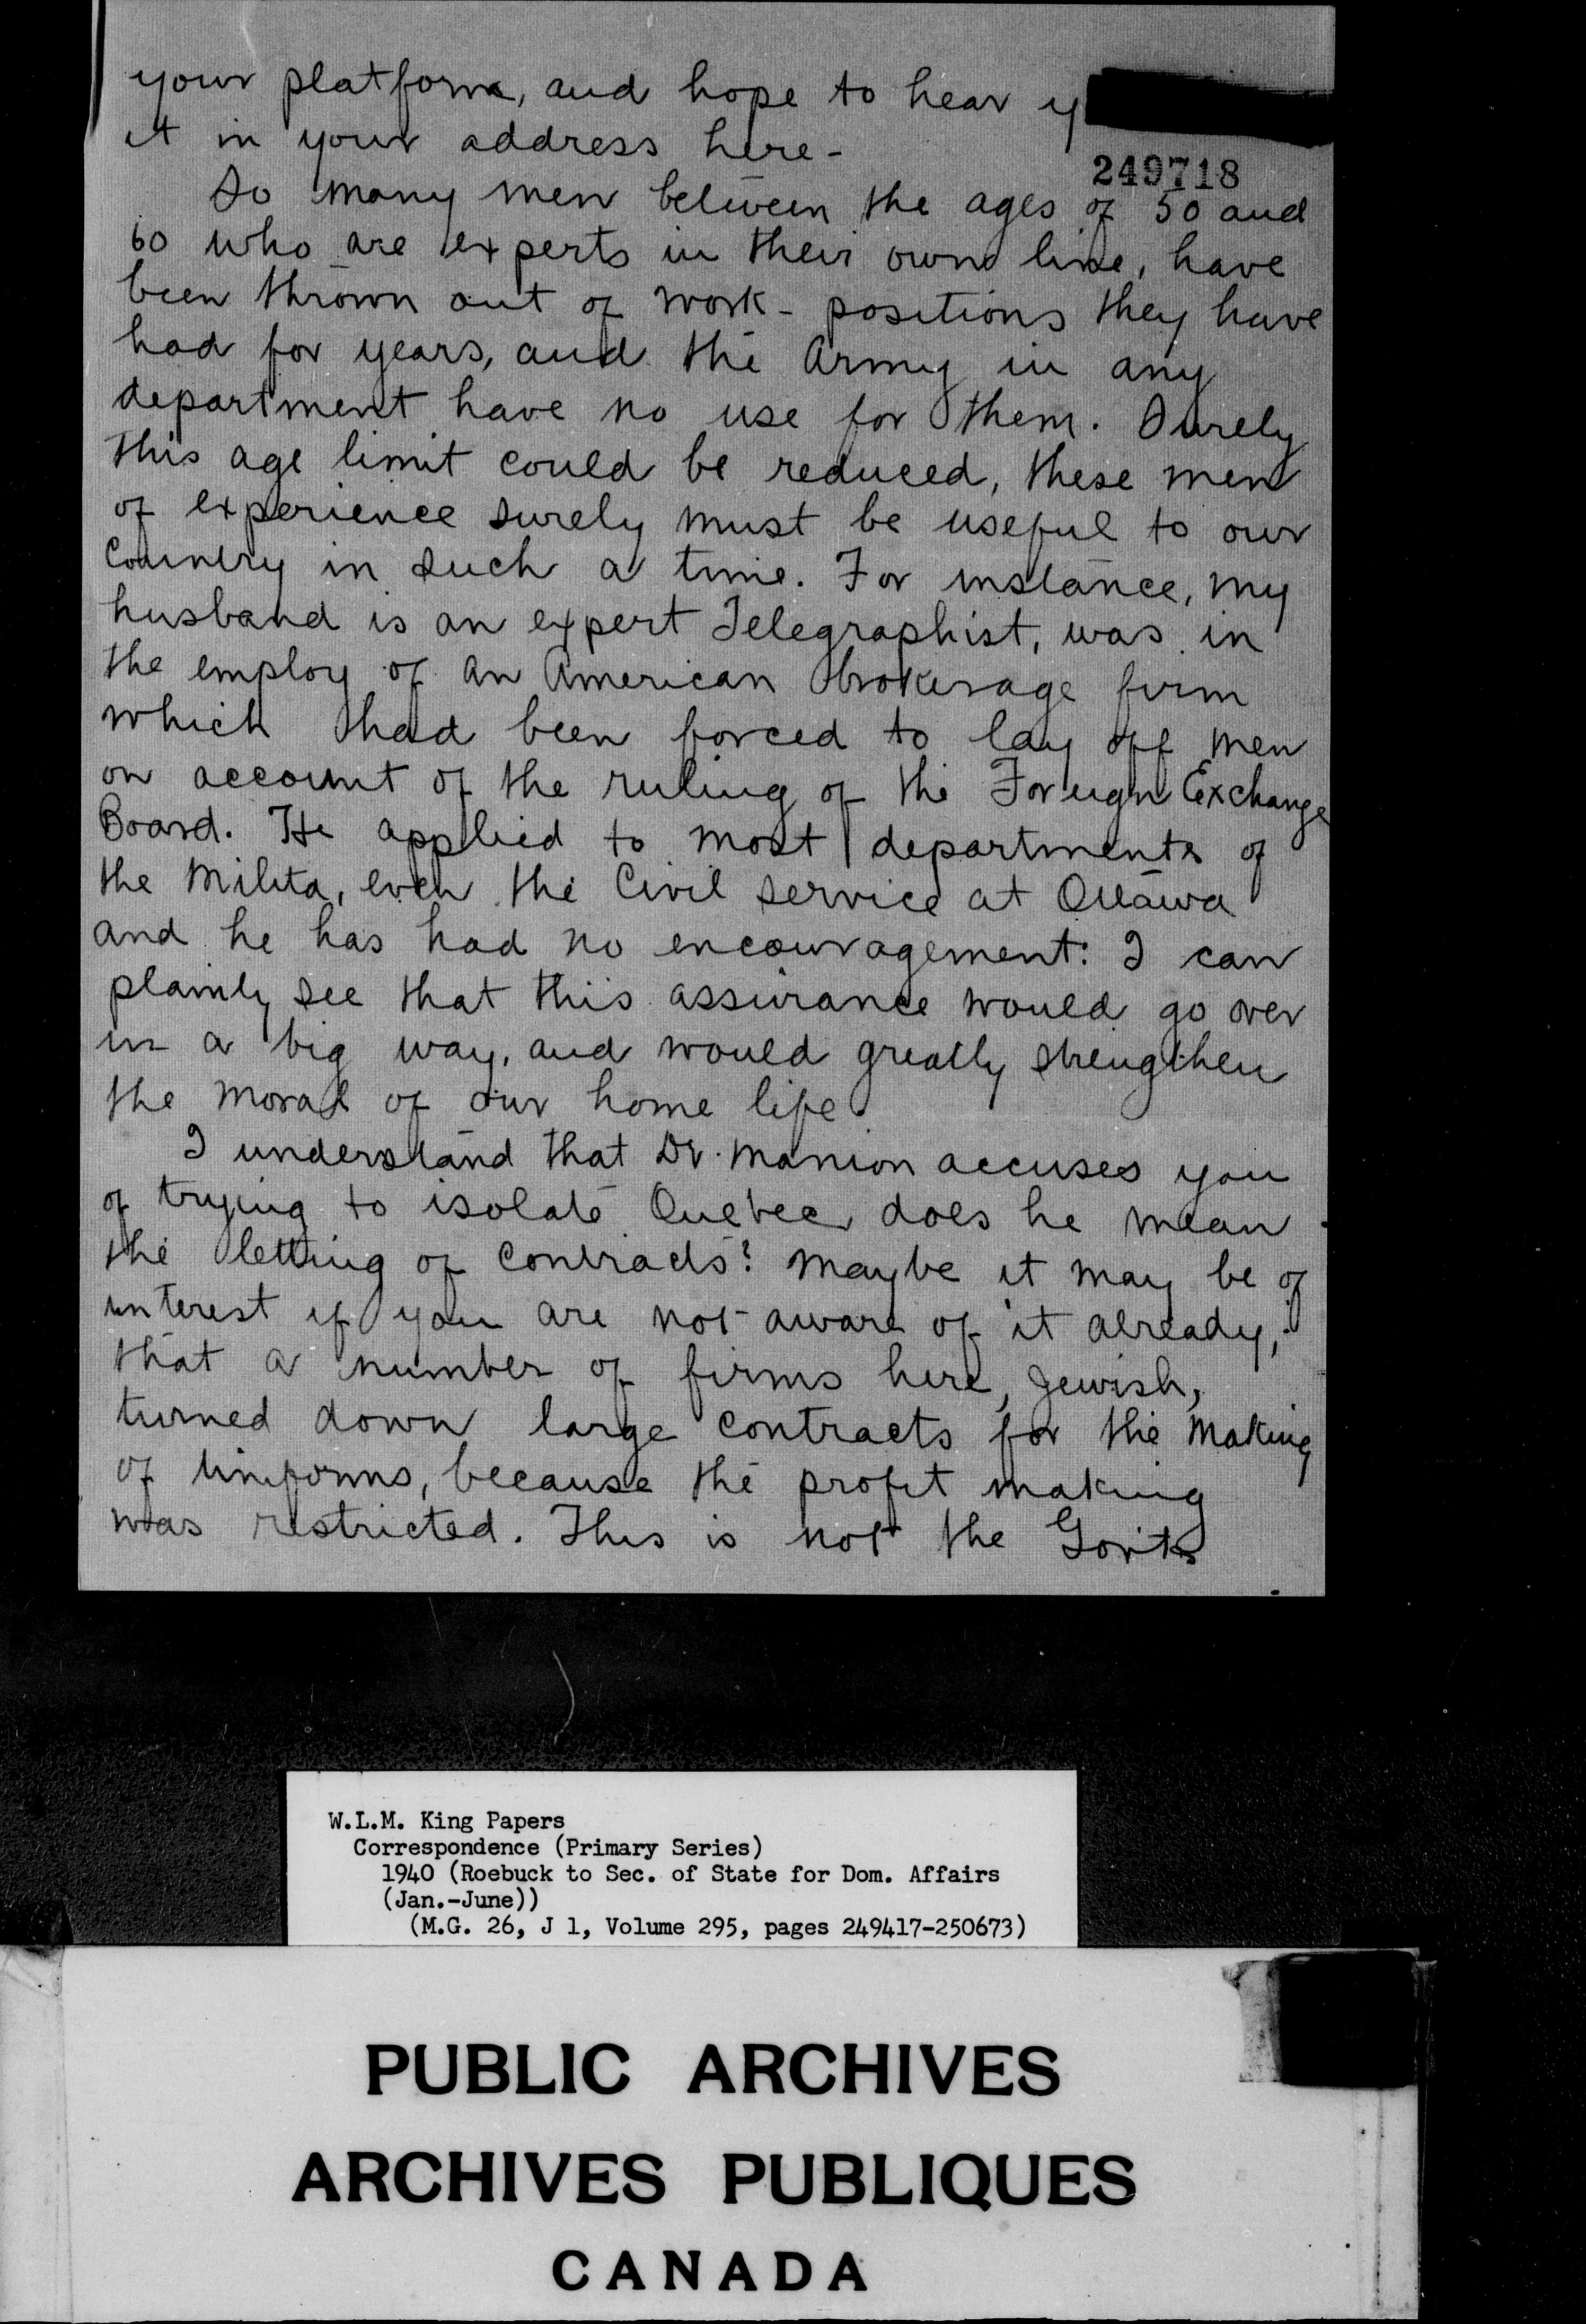 your platform, and hope to hear y
it in your address here -
249718
So many men between the ages of 50 and
60 who are experts in their own line, have
been thrown out of work - positions they have
had for years, and the Army in any
department have no use for them. Surely
this age limit could be reduced, these men
of experience surely must be useful to our
Country in such a time. For instance, my
husband is an expert Telegraphist, was in
the employ of an American brokerage firm
which had been forced to lay off men
on account of the ruling of the Foreign Exchange
Board. He applied to most departments of
the Milita, even the Civil Service at Ottawa
and he has had no encouragement: I can
plainly see that this assurance would go over
in a big way, and would greatly strengthen
the moral of our home life.
I understand that Dr. Manion accuses you
of trying to isolate Quebec does he mean
the letting of Contracts? Maybe it may be of
interest if you are not aware of it already,
that a number of firms here, Jewish,
turned down large contracts for the making
of Uniforms, because the profit making
was restricted. This is not the Govt's
W.L.M. King Papers
Correspondence (Primary Series)
1940 (Roebuck to Sec. of State for Dom. Affairs
(Jan.-June))
(M.G. 26, J 1, Volume 295, pages 249417-250673)
PUBLIC ARCHIVES
ARCHIVES PUBLIQUES
CANADA